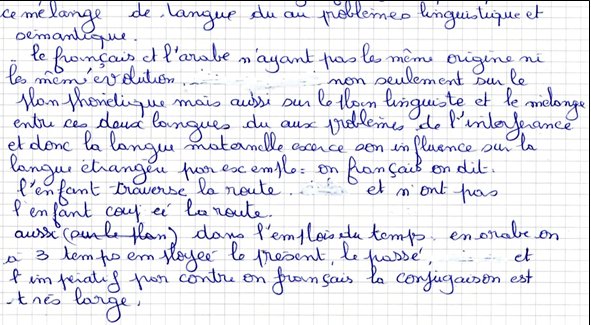 ce mélange de langue du au problèmes linguistique et
semantique.
le français et l'arabe n'ayant pas les même origine ni
les mêm'evolution non seulement sur le
plan phonidique mais aussi sur le plan linguiste et le mélange
entre ces deux langues du aux problèmes de l'interferance
et donc la langue maternelle exerce son influence sur la
langue étrangéu par exemple: on français on dit.
l'enfant traverse la route. et n'ont pas
l'enfant coup ei la route.
aussi (sur le plan) dans l'emplois du temps. en arabe on
a 3 temps employeé le présent, le passé, et
l'impératif par contre on français la conjugaison est
très large,